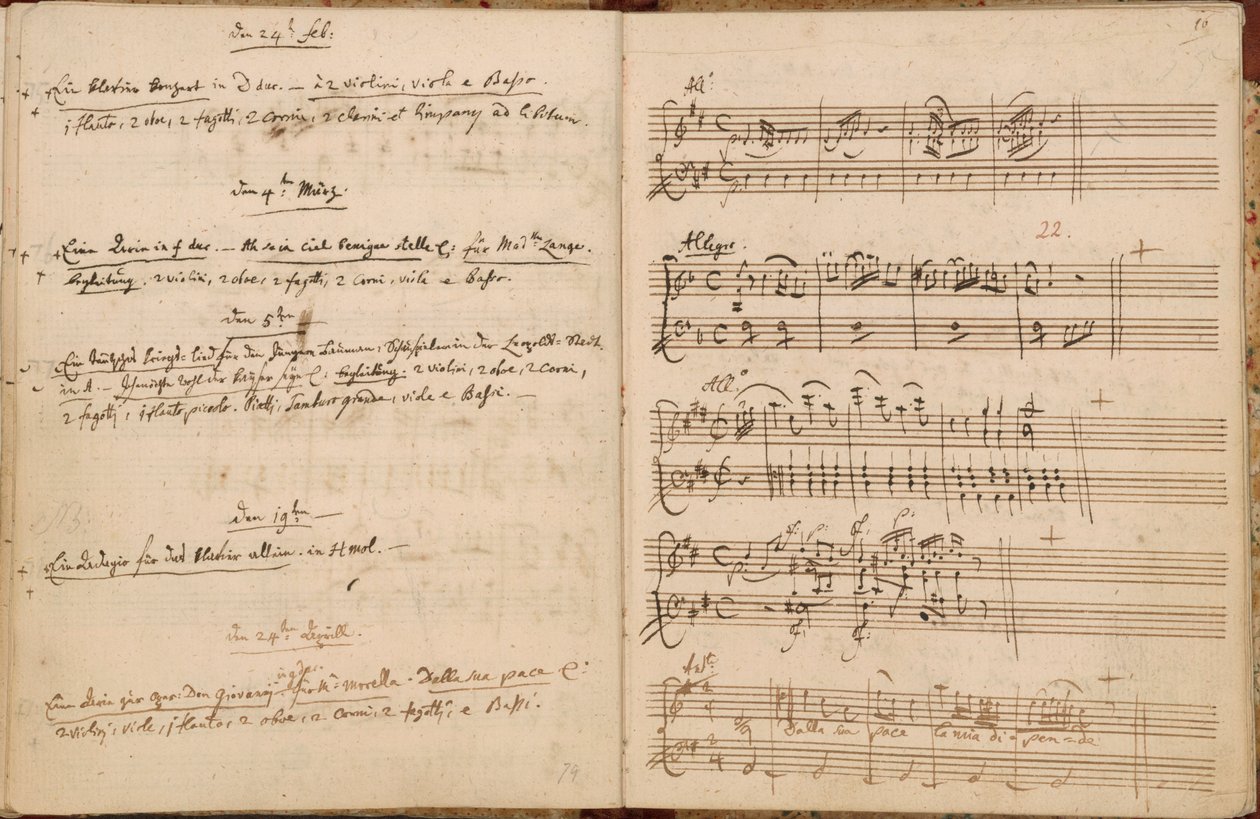 den 24:t feb:
Ein klavier konzert in D dur. — à 2 violini, viola e Basso.
1 flauto, 2 oboe, 2 fagotti, 2 Corni, 2 clarini et timpany ad libitum.
den 4:ten März.
Eine Arie in f dur. — Ah se in ciel benigne stelle &: für Mad:me Lange.
begleitung. 2 violini, 2 oboe, 2 fagotti, 2 Corni, viola e Basso.
den 5:ten
Ein teutsches kriegs=lied für den Jungern Bauman; Schauspieler in der Leopold=Stadt.
in A. — Ich möchte wohl der kayser seyn &: begleitung. 2 violini, 2 oboe, 2 Corni,
2 fagotti, 1 flauto piccolo. Piatti, Tamburo grande, viola e Bassi. —
den 19:ten —
Ein Adagio für das klavier allein. in H mol. —
den 24:ten Aprill.
in g dur.
Eine Arie zur oper: Don Giovanni — für Mr: Morella. Dalla sua pace &:
2 violini, viole, 1 flauto, 2 oboe, 2 Corni, 2 fagotti, e Bassi.
79
16
All:o
p:
p:
22.
Allegro.
All:o
p:
sf: p: sf: p:
sf: sf:
And:te
Dalla sua pace la mia di=pen=de